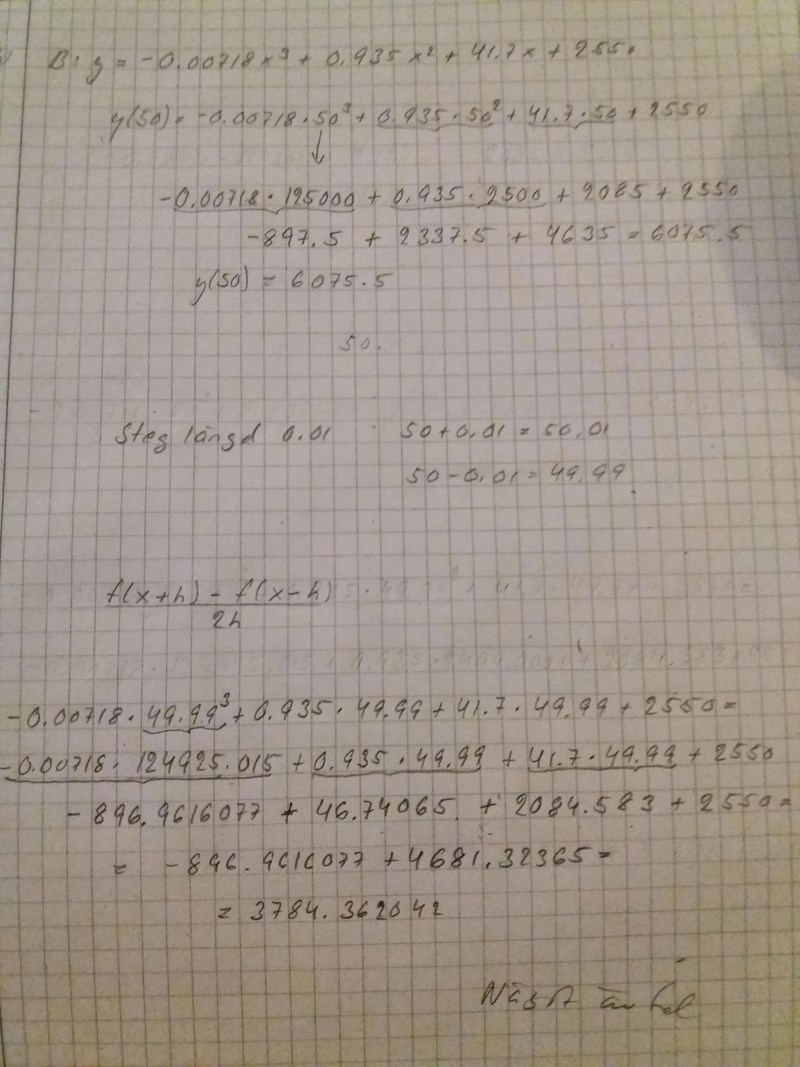 B: y = -0.00718x³ + 0.935x² + 41.7x + 2550
y(50) = -0.00718 · 50³ + 0.935 · 50² + 41.7 · 50 + 2550
↓
-0.00718 · 125000 + 0.935 · 2500 + 2085 + 2550
-897.5 + 2337.5 + 4635 = 6075.5
y(50) = 6075.5
50.
Steg längd 0.01 50+0,01 = 50,01
50-0,01 = 49,99
f(x+h) - f(x-h)
2h
-0.00718 · 49.99³ + 0.935 · 49.99 + 41.7 · 49,99 + 2550 =
-0.00718 · 124925.015 + 0.935 · 49.99 + 41.7 · 49.99 + 2550
-896.9616077 + 46.74065 + 2084.583 + 2550 =
= -896.9616077 + 4681,32365 =
= 3784.362042